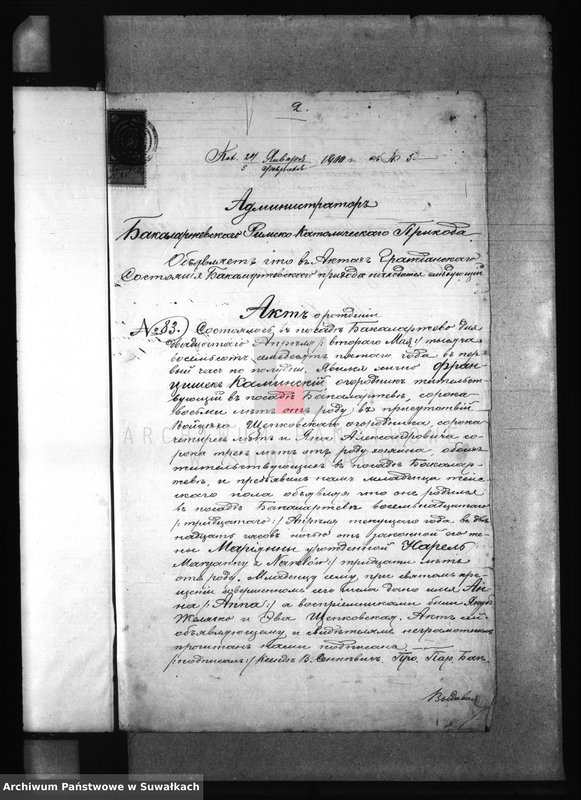 2.
24 Января
5 февраля 1900 г. къ № 5.
Администраторъ
Бакаларжевскаго Римско Католическаго Прихода
Объявляетъ что въ Актахъ Гражданскаго
Состоянія Бакаларжевскаго прихода находится слѣдующій
Актъ о рожденіи
№ 83.) Состоялось въ посадѣ Бакаларжево дня
двадцатаго Апрѣля /: втораго Мая :/ тысяча
восемьсотъ семьдесятъ пятаго года въ пер
вый часъ по полудни. Явился лично Фран
цишекъ Каминскій огородникъ жительст
вующій въ посадѣ Бакаларжевѣ, сорока
восьми лѣтъ отъ роду въ присутствіи
Войцѣха Щепковскаго огородника, сорока
четырехъ лѣтъ и Яна Александровича со
рока трехъ лѣтъ отъ роду хозяина, обоихъ
жительствующихъ въ посадѣ Бакалар-
жевѣ, и предъявилъ намъ младенца женс
каго пола объявляя что онъ родился
въ посадѣ Бакаларжевѣ восемнадцатаго
/: тридцатаго :/ Апрѣля текущаго года въ две
надцать часовъ ночью отъ законной его же
ны Маріянны урожденной Нарель
/: Maryanny z Narelów :/ тридцати лѣтъ
отъ роду. Младенцу сему, при святомъ кре
щеніи совершенномъ сего числа дано имя Ан
на /: Anna :/ а воспріемниками были Якубъ
Желязко и Эва Щепковская. Актъ сей
объявляющему и свидѣтелямъ неграмотнымъ
прочитанъ нами подписанъ
/: подписалъ :/ Ксендзъ В. Сенкевичъ. Про. Пар. Бак.
Выдавая
Archiwum Państwowe w Suwałkach